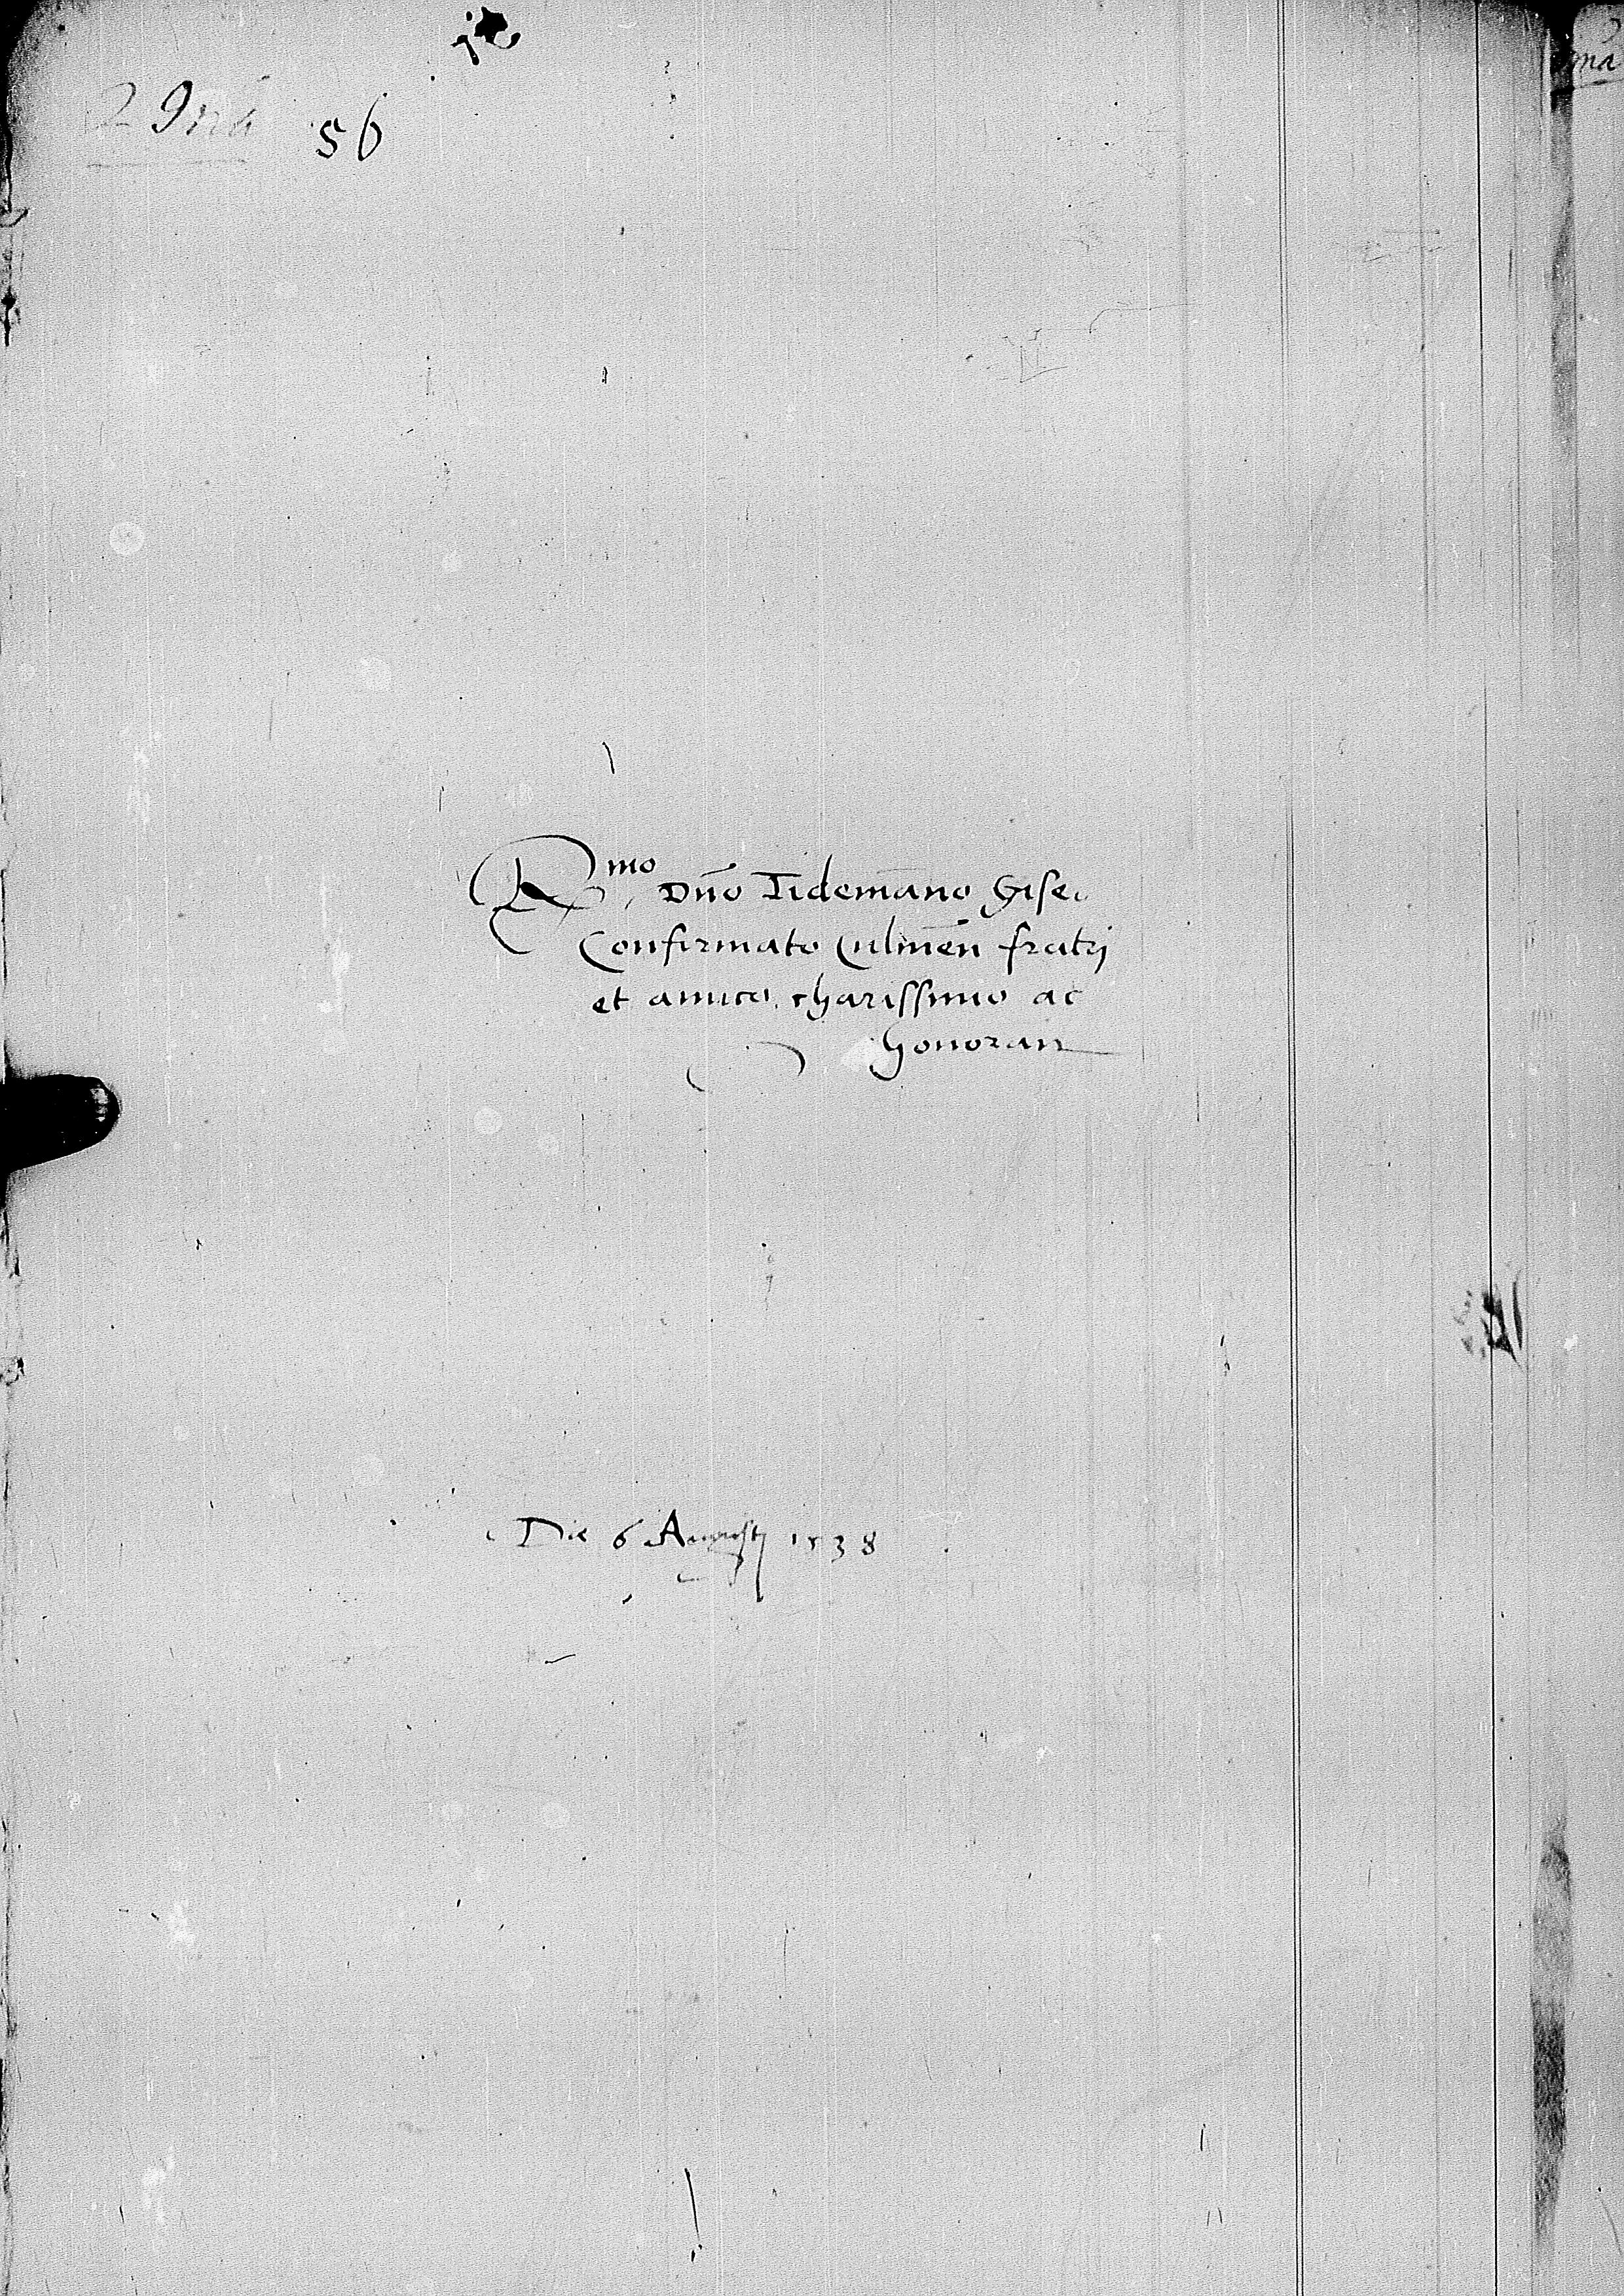 56
Rmo Dno Tidemanno Gise
Confirmato Culmen fratrj
et amico charissimo ac
honoran
Die 6 Augustj 1538